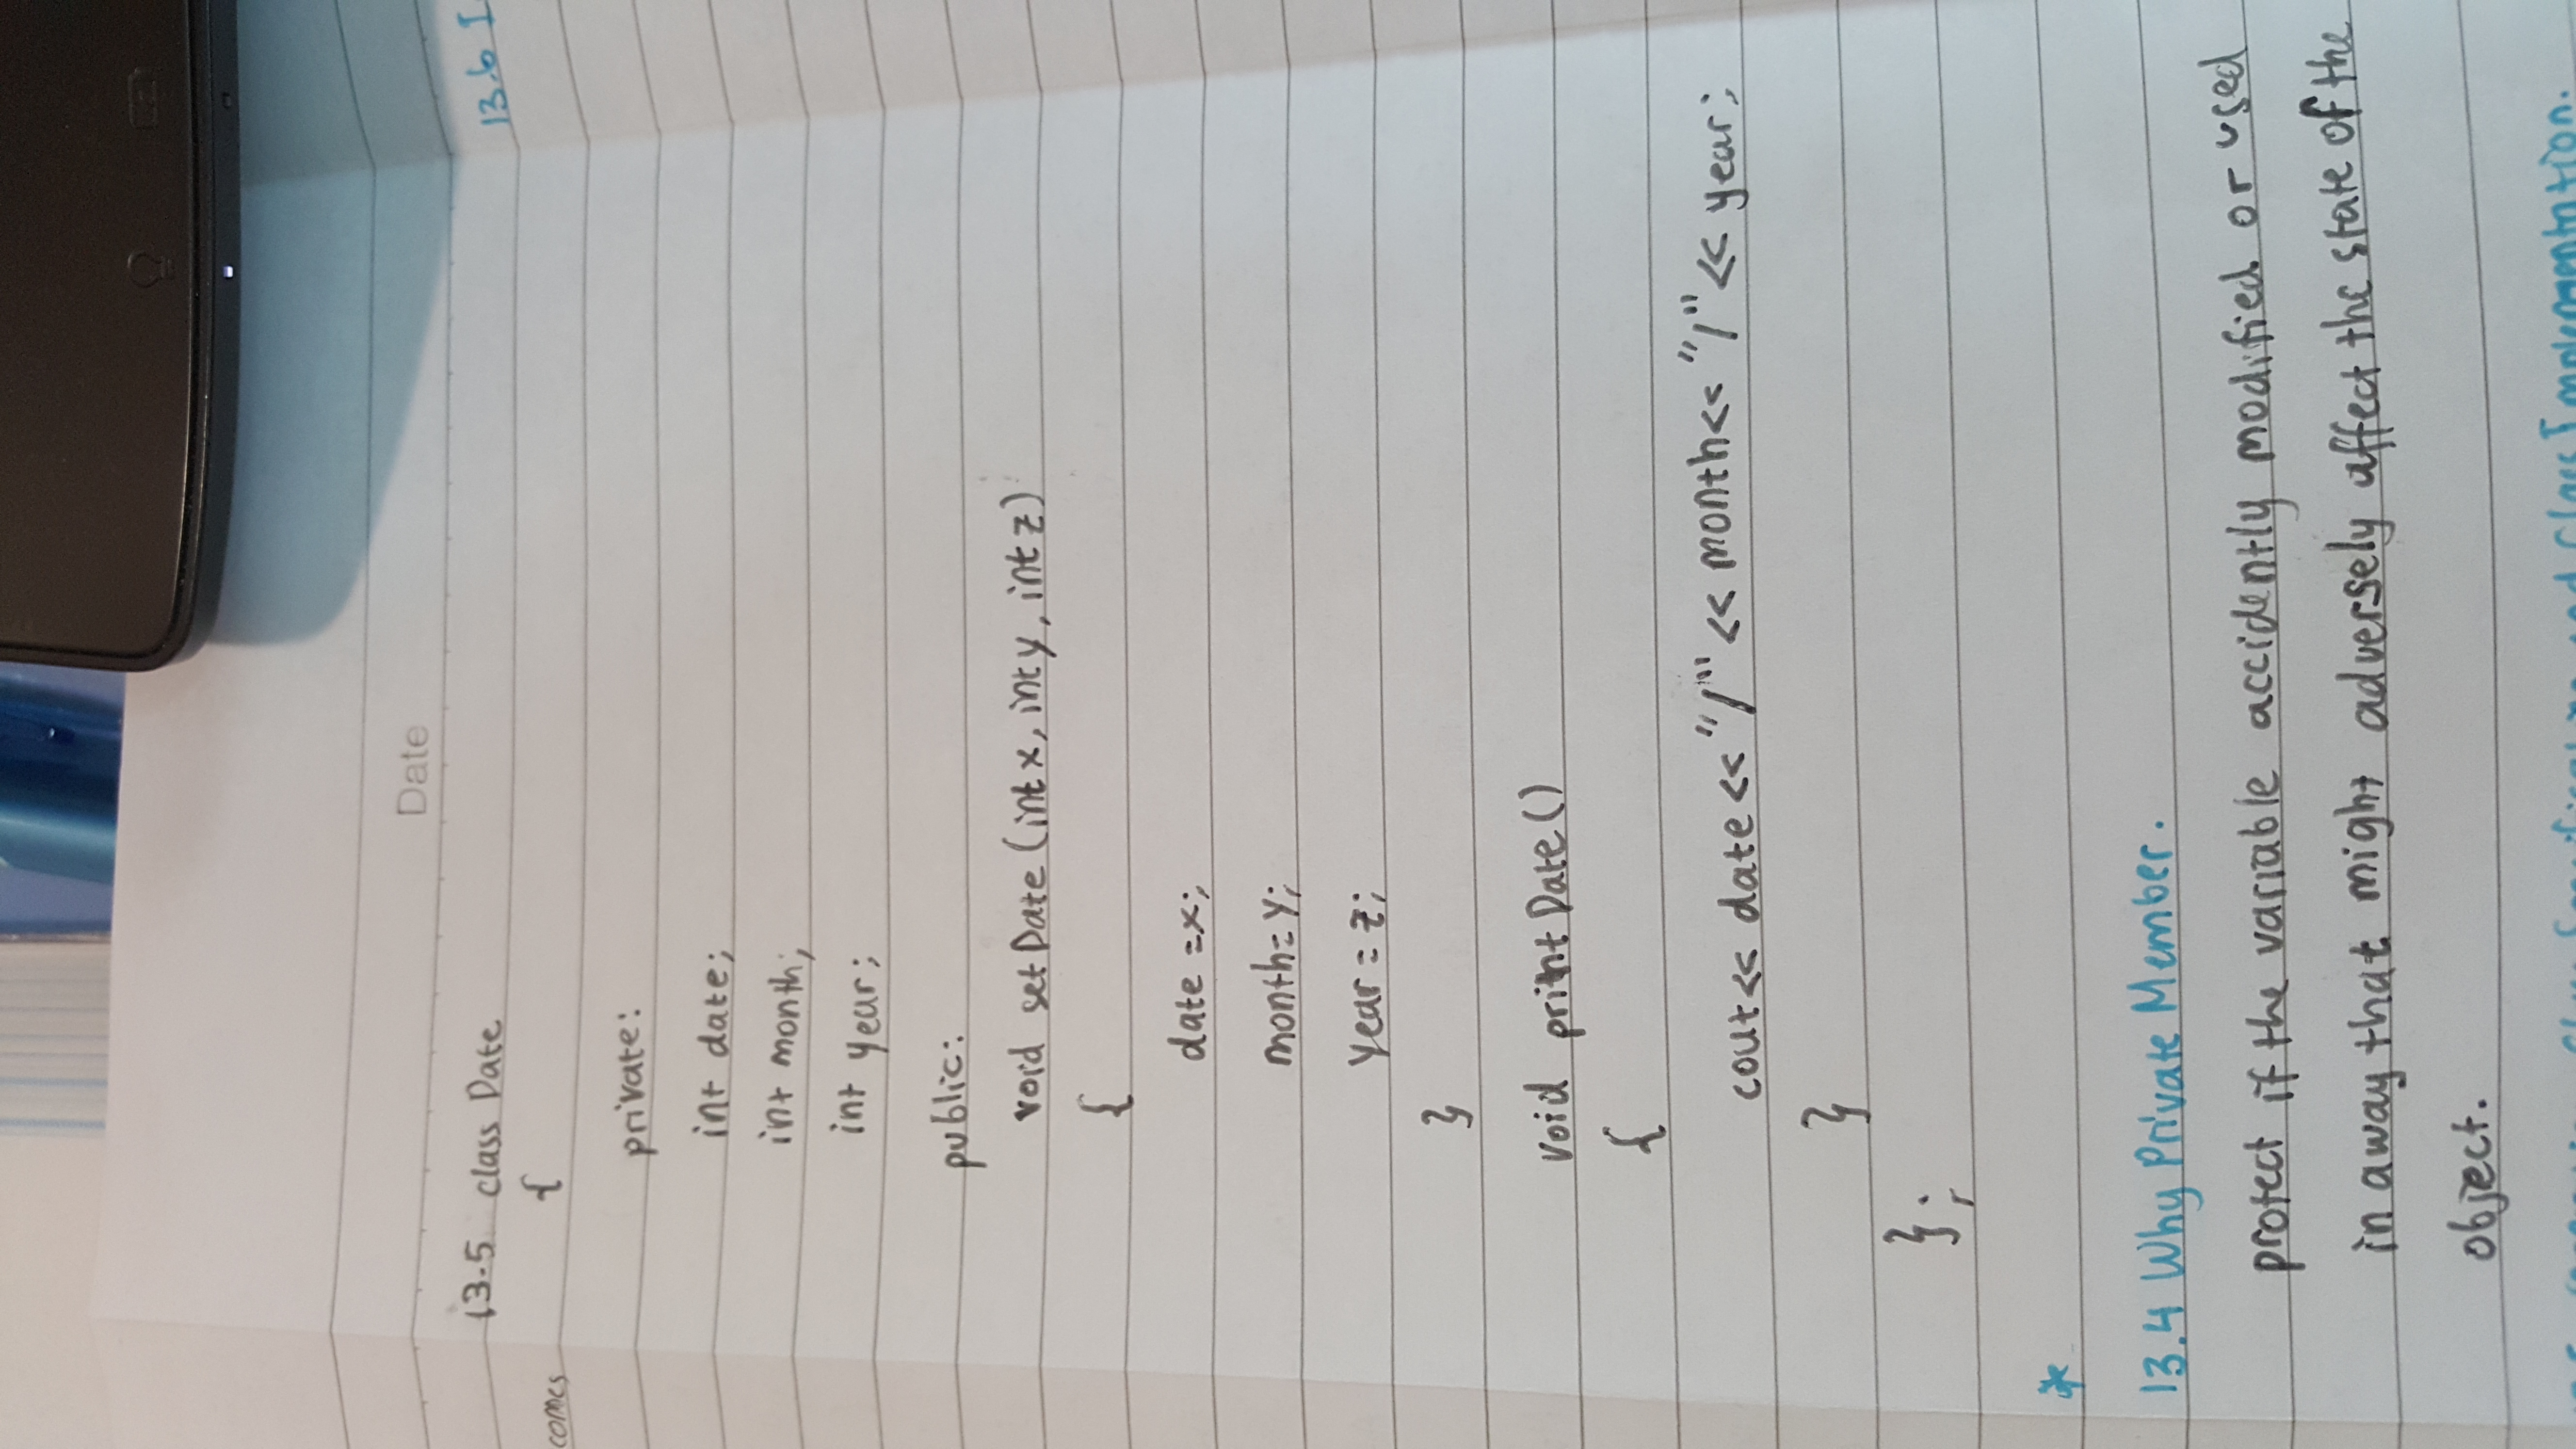 Date
13.5 class Date
{
private:
int date;
int month;
int year;
public:
void setDate (int x, int y, int z)
{
date =x;
month= y;
year = z;
}
void printDate ()
{
cout<< date << "/" << month<< "/" << year;
}
};
*
13.4 Why Private Member.
protect if the variable accidently modified or used
in away that might adversely affect the state of the
object.
and Class Implementation.
comes
13.6 I